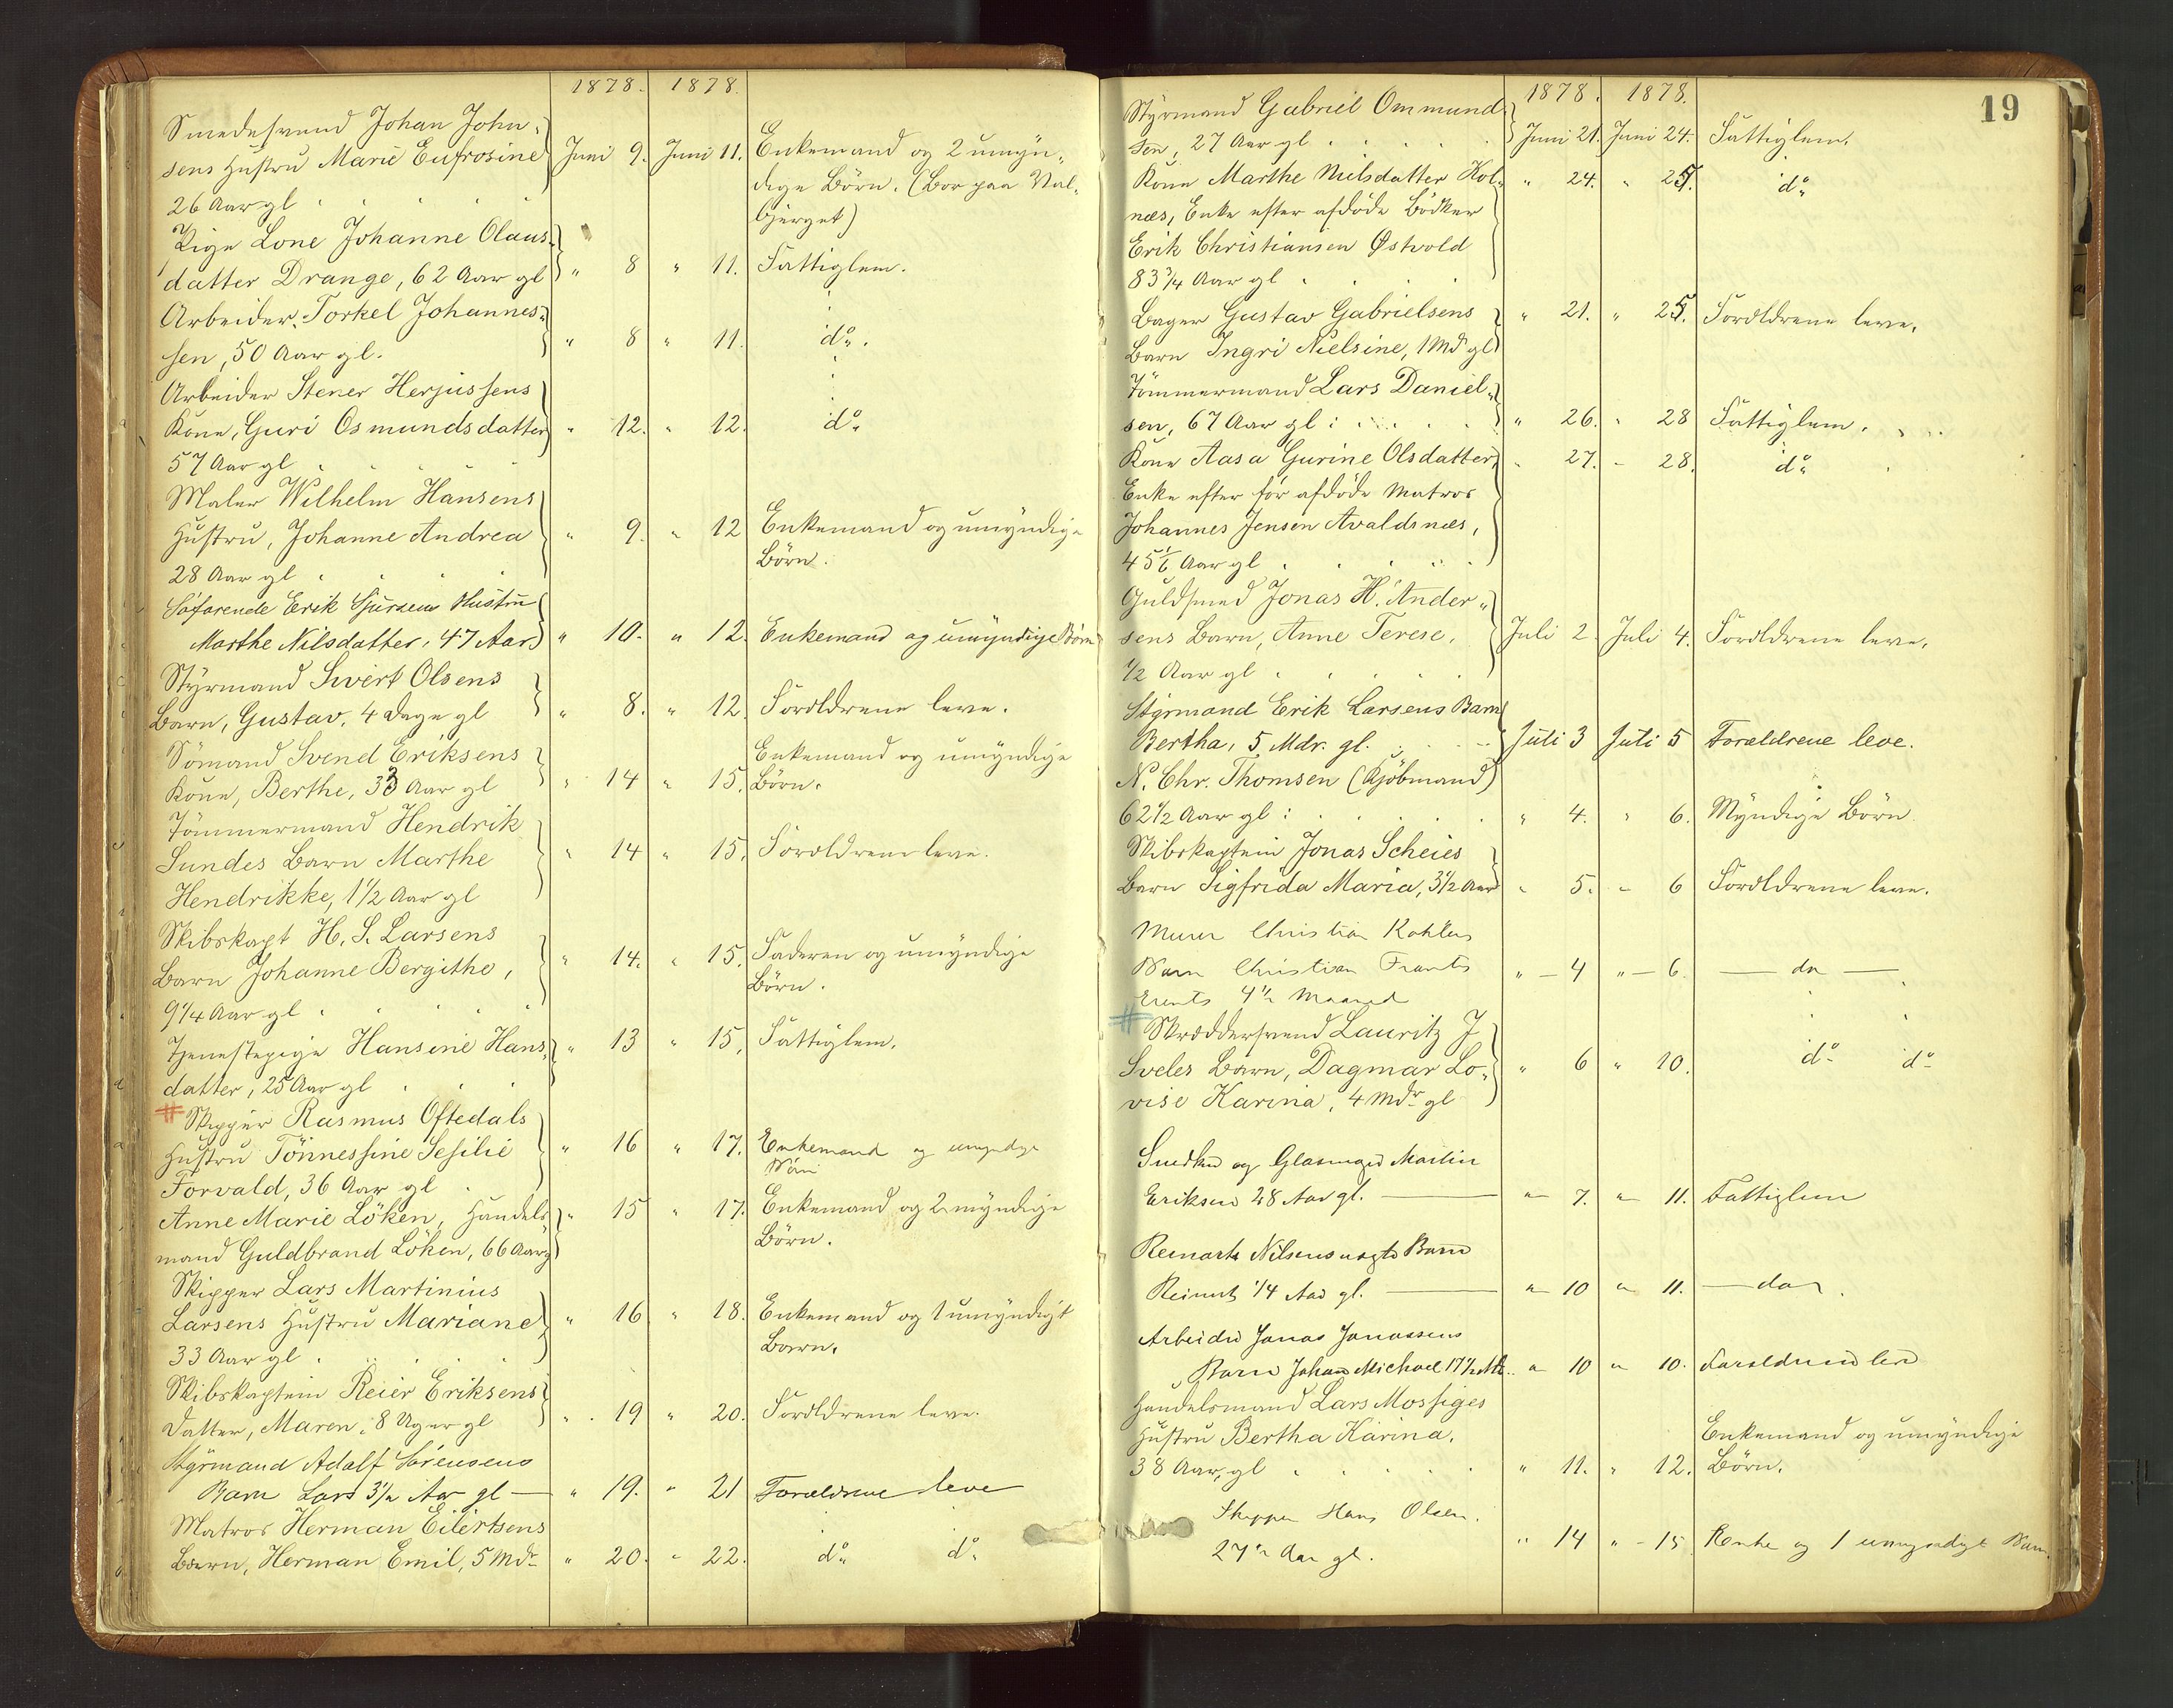 1878. 1878.
Smedesvend Johan John-
sens Hustru Marie Eufrosine Juni 9. Juni 11. Enkemand og 2 umyn-
26 Aar gl dige Börn. (Bor paa Val-
bjerget)
Pige Lone Johanne Olaus-
datter Drange, 62 Aar gl " 8 " 11. Fattiglem.
Arbeider Torkel Johannes-
sen, 50 Aar gl. " 8 " 11. do.
Arbeider Stener Herjussens
Kone, Guri Osmundsdatter " 12. " 12. do
57 Aar gl
Maler Wilhelm Hansens
Hustru, Johanne Andrea " 9. " 12 Enkemand og umyndige
28 Aar gl Börn.
Söfarende Erik Sjursens Hustru
Marthe Nilsdatter, 47 Aar " 10. " 12. Enkemand og umyndige Börn
Styrmand Sivert Olsens
Barn, Gustav, 4 Dage gl " 8. " 12. Forældrene leve.
Sömand Svend Eriksens Enkemand og umyndige
Kone, Berthe, 33 Aar gl " 14 " 15. Börn.
Tömmermand Hendrik
Sundes Barn Marthe " 14 " 15. Forældrene leve.
Hendrikke, 1 1/2 Aar gl
Skibskapt H. S. Larsens
Barn Johanne Bergithe, " 14. " 15. Faderen og umyndige
9 1/4 Aar gl Börn.
Tjenestepige Hansine Hans- " 13 " 15. Fattiglem.
datter, 25 Aar gl
# Skipper Rasmus Oftedals
Hustru Tönnessine Sesilie " 16 " 17. Enkemand og umyndige
Torvald, 36 Aar gl Börn
Anne Marie Löken, Handels- " 15 " 17. Enkemand og 2 myndige
mand Guldbrand Löken, 66 Aar g Börn.
Skipper Lars Martinius
Larsens Hustru Mariane " 16 " 18. Enkemand og 1 umyndigt
33 Aar gl Barn.
Skibskaptein Reier Eriksens
Datter, Maren, 8 Uger gl " 19 " 20. Forældrene leve.
Styrmand Adolf Sörensens
Barn Lars 3 1/2 Aar gl " 19. " 21 Forældrene leve
Matros Herman Eilertsens
Barn, Herman Emil, 5 Mdr " 20. " 22. do do
19
1878. 1878.
Styrmand Gabriel Ommund-
sen, 27 Aar gl Juni 21. Juni 24. Fattiglem.
Kone Marthe Nilsdatter Hol- " 24. " 25. do
næs, Enke efter afdöde Bödker
Erik Christiansen Østvold
83 3/4 Aar gl
Bager Gustav Gabrielsens " 21. " 25. Forældrene leve.
Barn Ingri Nielsine, 1 Md gl
Tömmermand Lars Daniel-
sen, 67 Aar gl " 26. " 28 Fattiglem.
Kone Aasa Gurine Olsdatter, " 27. " 28. do
Enke efter för afdöde Matros
Johannes Jensen Avaldsnæs,
45 1/6 Aar gl
Guldsmed Jonas H. Ander-
sens Barn, Anne Terese, Juli 2. Juli 4. Forældrene leve.
1/2 Aar gl
Styrmand Erik Larsens Barn
Bertha, 5 Mdr. gl. Juli 3 Juli 5 Forældrene leve.
N. Chr. Thomsen (Kjöbmand)
62 1/2 Aar gl " 4. " 6. Myndige Börn
Skibskaptein Jonas Scheies
Barn Sigfrida Maria, 3 1/2 Aar " 5. " 6 Forældrene leve.
Murer Christian Kohlers
Barn Christian Frants " 4 " 6. do
4 1/2 Maaned
# Skræddersvend Lauritz J
Sveles Barn, Dagmar Lo- " 6 " 10. do do
vise Karina, 4 Mdr gl
Snedker og Glasmager Martin
Eriksen 28 Aar gl. " 7. " 11. Fattiglem
Reinart Nilsens uægte Barn
Reinert 1/4 Aar gl. " 10 " 11. do
Arbeider Jonas Jonassens
Barn Johan Michael 17 1/2 " 10 " 10. Forældrene leve
Handelsmand Lars Mossiges
Hustru Bertha Karina, Enkemand og umyndige
38 Aar gl " 11. " 12. Börn.
Skipper Hans Olsen.
27 1/2 Aar gl. " 14 " 15 Enke og 1 umyndigt Barn.